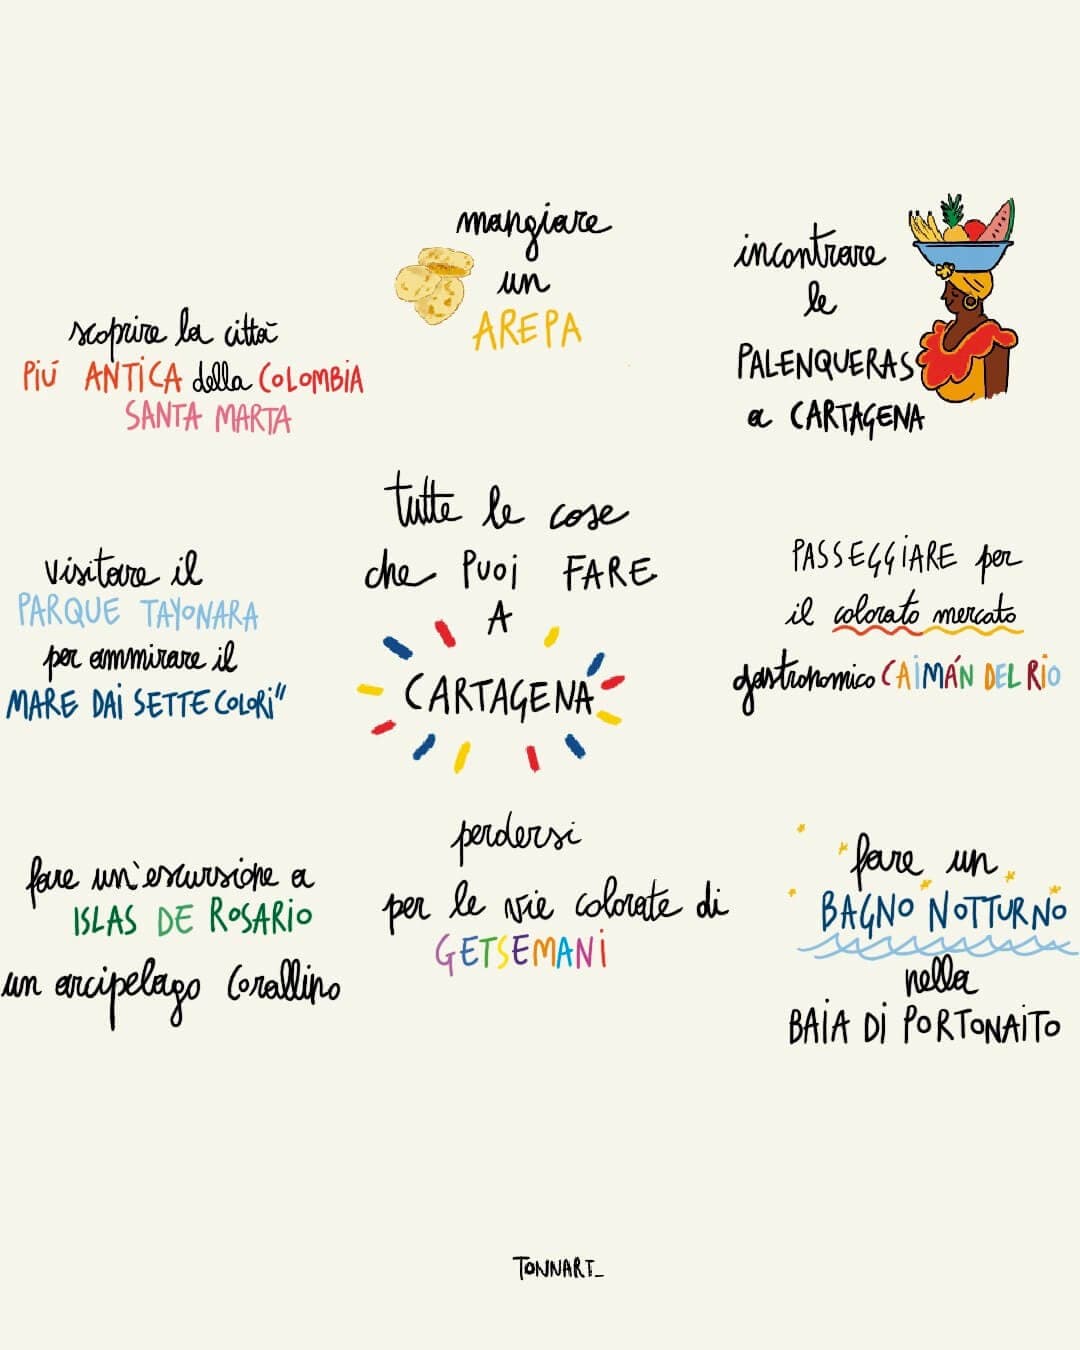 mangiare
un
AREPA
incontrare
le
PALENQUERAS
a CARTAGENA
scoprire la città
PIÚ ANTICA della COLOMBIA
SANTA MARTA
tutte le cose
che PUOI FARE
A
CARTAGENA
visitare il
PARQUE TAYONARA
per ammirare il
MARE DAI SETTE COLORI"
PASSEGGIARE per
il colorato mercato
gastronomico CAIMÁN DEL RÍO
fare un'escursione a
ISLAS DE ROSARIO
un arcipelago corallino
perdersi
per le vie colorate di
GETSEMANI
fare un
BAGNO NOTTURNO
nella
BAIA DI PORTONAITO
TONNART_